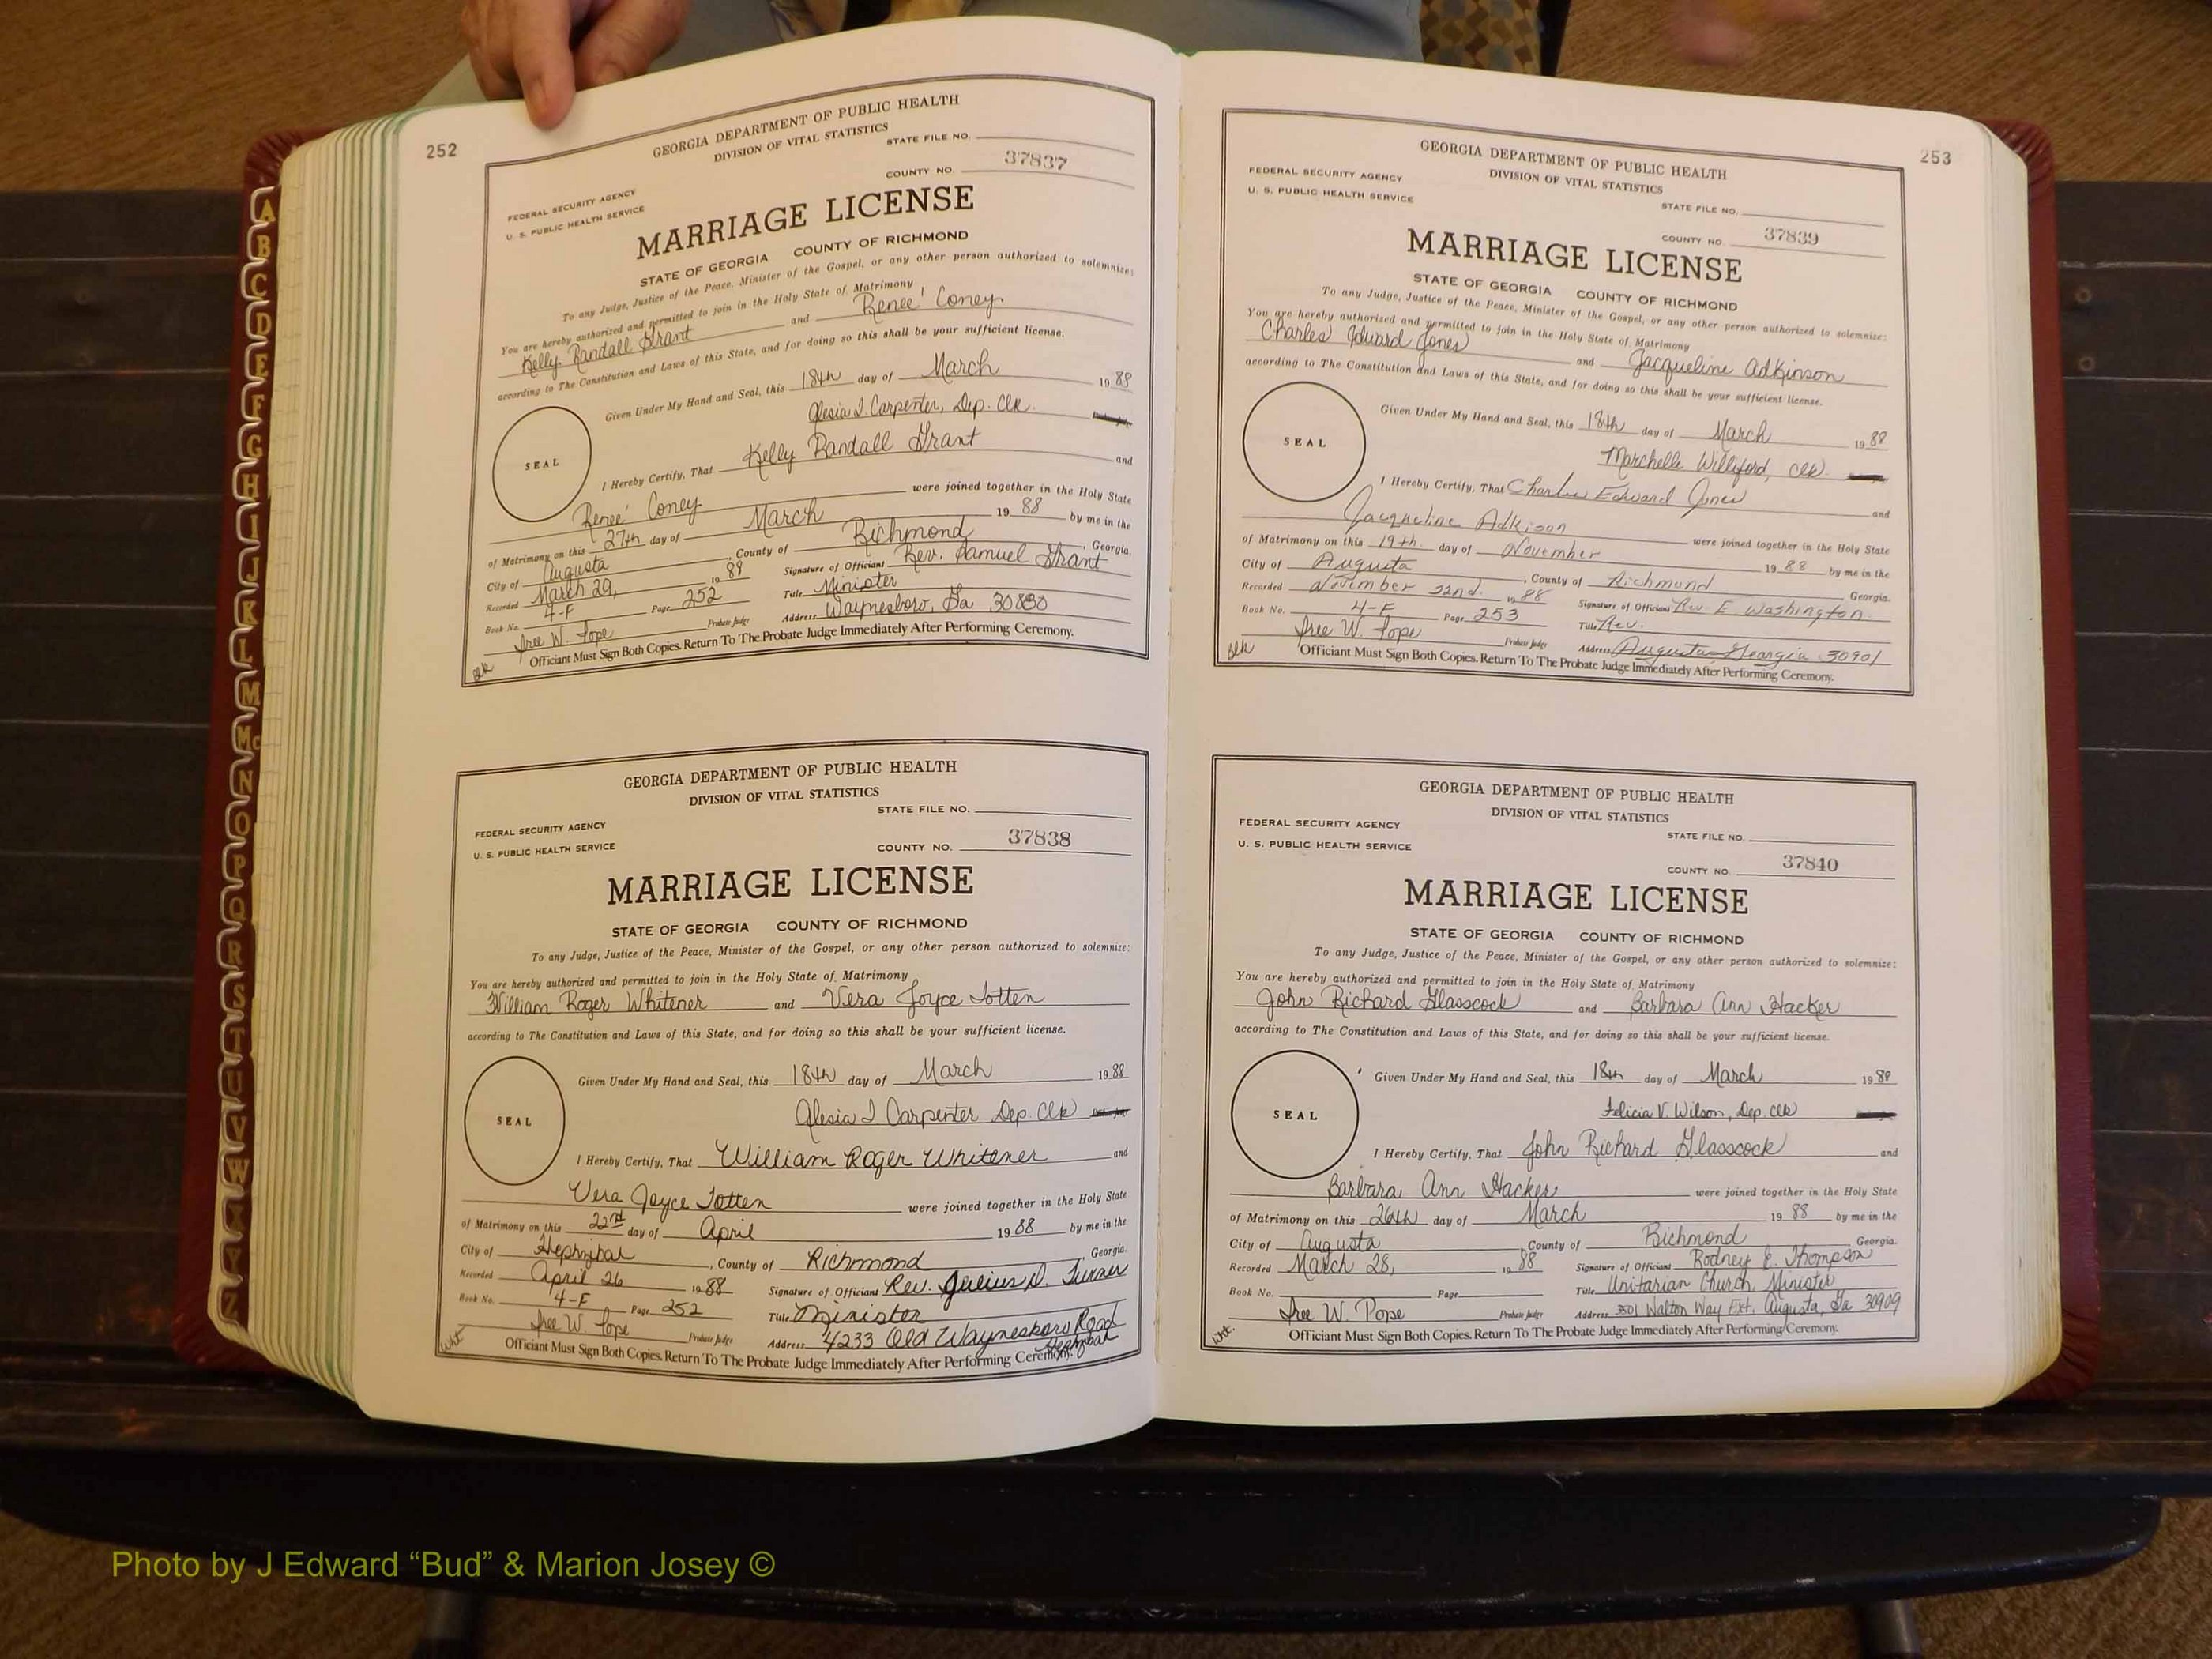 252
GEORGIA DEPARTMENT OF PUBLIC HEALTH
DIVISION OF VITAL STATISTICS
STATE FILE NO.
COUNTY NO. 37837
FEDERAL SECURITY AGENCY
U. S. PUBLIC HEALTH SERVICE
MARRIAGE LICENSE
STATE OF GEORGIA COUNTY OF RICHMOND
To any Judge, Justice of the Peace, Minister of the Gospel, or any other person authorized to solemnize:
You are hereby authorized and permitted to join in the Holy State of Matrimony
Kelly Randall Grant and Renee' Coney
according to The Constitution and Laws of this State, and for doing so this shall be your sufficient license.
Given Under My Hand and Seal, this 18th day of March 1988
Alesia I. Carpenter, Dep. Clk.
SEAL
I Hereby Certify, That Kelly Randall Grant and
Renee' Coney were joined together in the Holy State
of Matrimony on this 27th day of March 1988 by me in the
City of Augusta, County of Richmond, Georgia.
Recorded March 29, 1989 Signature of Officiant Rev. Samuel Grant
Book No. 4-F Page 252 Title Minister
Iree W. Pope Probate Judge Address Waynesboro, Ga 30830
Blk Officiant Must Sign Both Copies. Return To The Probate Judge Immediately After Performing Ceremony.
GEORGIA DEPARTMENT OF PUBLIC HEALTH
DIVISION OF VITAL STATISTICS
STATE FILE NO.
FEDERAL SECURITY AGENCY
U. S. PUBLIC HEALTH SERVICE
COUNTY NO. 37838
MARRIAGE LICENSE
STATE OF GEORGIA COUNTY OF RICHMOND
To any Judge, Justice of the Peace, Minister of the Gospel, or any other person authorized to solemnize:
You are hereby authorized and permitted to join in the Holy State of Matrimony
William Roger Whitener and Vera Joyce Totten
according to The Constitution and Laws of this State, and for doing so this shall be your sufficient license.
Given Under My Hand and Seal, this 18th day of March 1988
Alesia I. Carpenter Dep. Clk
SEAL
I Hereby Certify, That William Roger Whitener and
Vera Joyce Totten were joined together in the Holy State
of Matrimony on this 22nd day of April 1988 by me in the
City of Hephzibah, County of Richmond, Georgia.
Recorded April 26 1988 Signature of Officiant Rev. Julius D. Turner
Book No. 4-F Page 252 Title Minister
Iree W. Pope Probate Judge Address 4233 Old Waynesboro Road
Hephzibah
Wht Officiant Must Sign Both Copies. Return To The Probate Judge Immediately After Performing Ceremony.
253
GEORGIA DEPARTMENT OF PUBLIC HEALTH
DIVISION OF VITAL STATISTICS
FEDERAL SECURITY AGENCY
U. S. PUBLIC HEALTH SERVICE
STATE FILE NO.
COUNTY NO. 37839
MARRIAGE LICENSE
STATE OF GEORGIA COUNTY OF RICHMOND
To any Judge, Justice of the Peace, Minister of the Gospel, or any other person authorized to solemnize:
You are hereby authorized and permitted to join in the Holy State of Matrimony
Charles Edward Jones and Jacqueline Adkinson
according to The Constitution and Laws of this State, and for doing so this shall be your sufficient license.
Given Under My Hand and Seal, this 18th day of March 1988
Marchelle Williford, Clk.
SEAL
I Hereby Certify, That Charles Edward Jones and
Jacqueline Adkison were joined together in the Holy State
of Matrimony on this 19th. day of November 1988 by me in the
City of Augusta, County of Richmond Georgia.
Recorded November 22nd. 1988 Signature of Officiant Rev. E. Washington.
Book No. 4-F Page 253 Title Rev.
Iree W. Pope Probate Judge Address Augusta, Georgia 30901
Blk Officiant Must Sign Both Copies. Return To The Probate Judge Immediately After Performing Ceremony.
GEORGIA DEPARTMENT OF PUBLIC HEALTH
DIVISION OF VITAL STATISTICS
FEDERAL SECURITY AGENCY
U. S. PUBLIC HEALTH SERVICE
STATE FILE NO.
COUNTY NO. 37840
MARRIAGE LICENSE
STATE OF GEORGIA COUNTY OF RICHMOND
To any Judge, Justice of the Peace, Minister of the Gospel, or any other person authorized to solemnize:
You are hereby authorized and permitted to join in the Holy State of Matrimony
John Richard Glasscock and Barbara Ann Hacker
according to The Constitution and Laws of this State, and for doing so this shall be your sufficient license.
Given Under My Hand and Seal, this 18th day of March 1988
Felicia V. Wilson, Dep. Clk
SEAL
I Hereby Certify, That John Richard Glasscock and
Barbara Ann Hacker were joined together in the Holy State
of Matrimony on this 26th day of March 1988 by me in the
City of Augusta, County of Richmond Georgia.
Recorded March 28, 1988 Signature of Officiant Rodney E. Thompson
Book No. Page Title Unitarian Church, Minister
Iree W. Pope Probate Judge Address 3501 Walton Way Ext. Augusta, Ga 30909
Wht. Officiant Must Sign Both Copies. Return To The Probate Judge Immediately After Performing Ceremony.
A
B
C
D
E
F
G
H
I
J
K
L
M
Mc
N
O
P
Q
R
S
T
U
V
W
X
Y
Z
Photo by J Edward “Bud” & Marion Josey ©